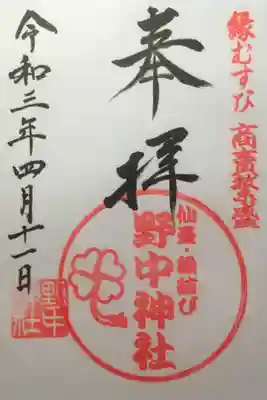 縁むすび 商売繁盛
奉拝
仙臺・縁結び
野中神社
令和三年四月十一日
野中
社